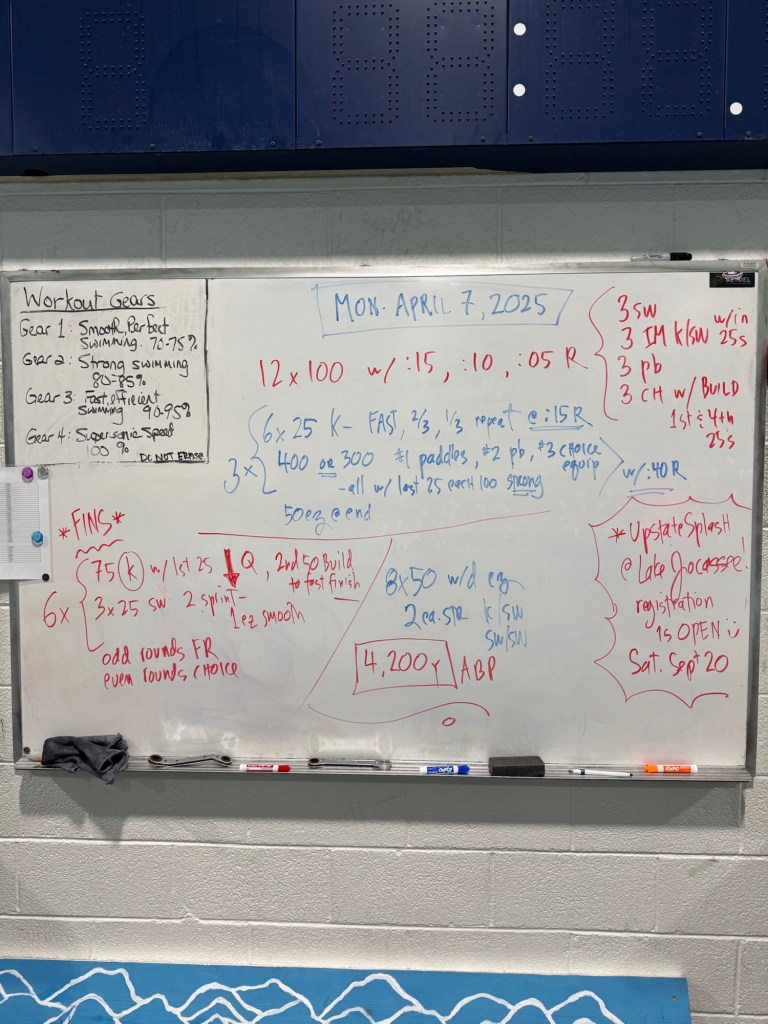 Workout Gears
Gear 1: Smooth, Perfect
Swimming. 70-75%
Gear 2: Strong swimming
80-85%
Gear 3: Fast, efficient
swimming 90-95%
Gear 4: Supersonic Speed
100 %
DO NOT ERASE
MON. APRIL 7, 2025
12 x 100 w/ :15, :10, :05 R
3 SW
3 IM K/SW w/in 25s
3 pb
3 CH w/ BUILD
1st & 4th
25s
3x
6 x 25 K - FAST, 2/3, 1/3 repeat @ :15 R
400 or 300 #1 paddles, #2 pb, #3 CHOICE
equip
- all w/ last 25 each 100 strong
w/ :40 R
50 ez @ end
*FINS*
6x
75 K w/ 1st 25 ↓ Q, 2nd 50 Build
to fast finish
3 x 25 SW 2 sprint -
1 ez smooth
odd rounds FR
even rounds CHOICE
8x50 w/d ez
2 ea. STR K/SW
SW/SW
4,200Y ABP
*Upstate Splash
@ Lake Jocassee!
registration
is OPEN
Sat. Sept 20
EXPO